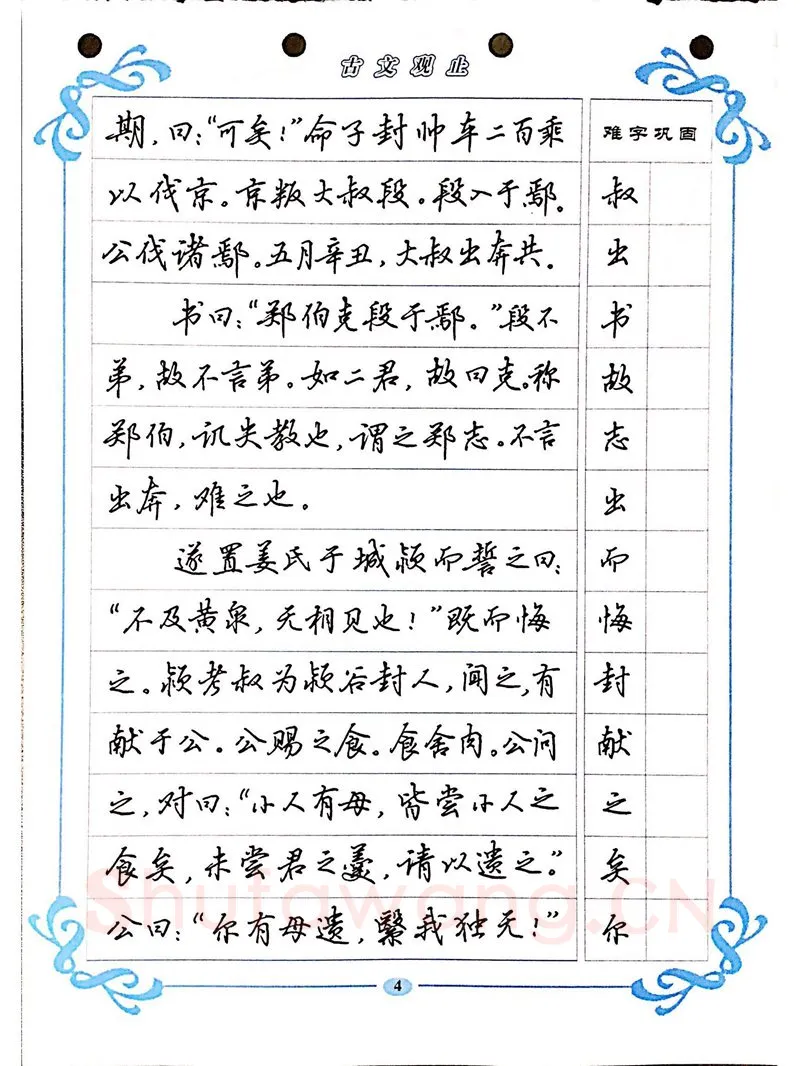 古文观止
期，曰：“可矣！”命子封帅车二百乘
以伐京。京叛大叔段。段入于鄢。
公伐诸鄢。五月辛丑，大叔出奔共。
书曰：“郑伯克段于鄢。”段不
弟，故不言弟。如二君，故曰克。称
郑伯，讥失教也，谓之郑志。不言
出奔，难之也。
遂置姜氏于城颍而誓之曰：
“不及黄泉，无相见也！”既而悔
之。颍考叔为颍谷封人，闻之，有
献于公。公赐之食。食舍肉。公问
之，对曰：“小人有母，皆尝小人之
食矣，未尝君之羹，请以遗之。”
公曰：“尔有母遗，繄我独无！”
难字巩固
叔
出
书
故
志
出
而
悔
封
献
之
矣
尔
4
Shufawang.CN